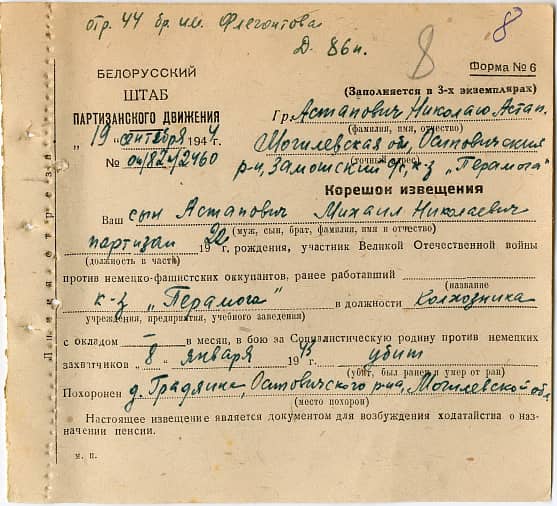 отр. 44 бр. им. Флегонтова
Д. 86 н.
8
8
Форма № 6
БЕЛОРУССКИЙ
ШТАБ
ПАРТИЗАНСКОГО ДВИЖЕНИЯ
„ 19 „ сентября 1944
№ 04/824/2460
(Заполняется в 3-х экземплярах)
Гр. Астапович Николаю Астап.
(фамилия, имя, отчество)
Могилевская обл, Осиповичский
(точный адрес)
р-н, Замошский с/с, к-з „Перамога"
Корешок извещения
Ваш сын Астапович Михаил Николаевич
(муж, сын, брат, фамилия, имя и отчество)
партизан 1922 г. рождения, участник Великой Отечественной войны
(должность в части)
против немецко-фашистских оккупантов, ранее работавший
(название
к-з „Перамога" в должности Колхозника
учреждения, предприятия, учебного заведения)
с окладом — в месяц, в бою за Социалистическую родину против немецких
захватчиков „ 8 „ января 1943 убит
(убит, был ранен и умер от ран)
Похоронен д. Градянка, Осиповичского р-на, Могилевской обл
(место похорон)
Настоящее извещение является документом для возбуждения ходатайства о наз-
начении пенсии.
м. п.
Линия отреза